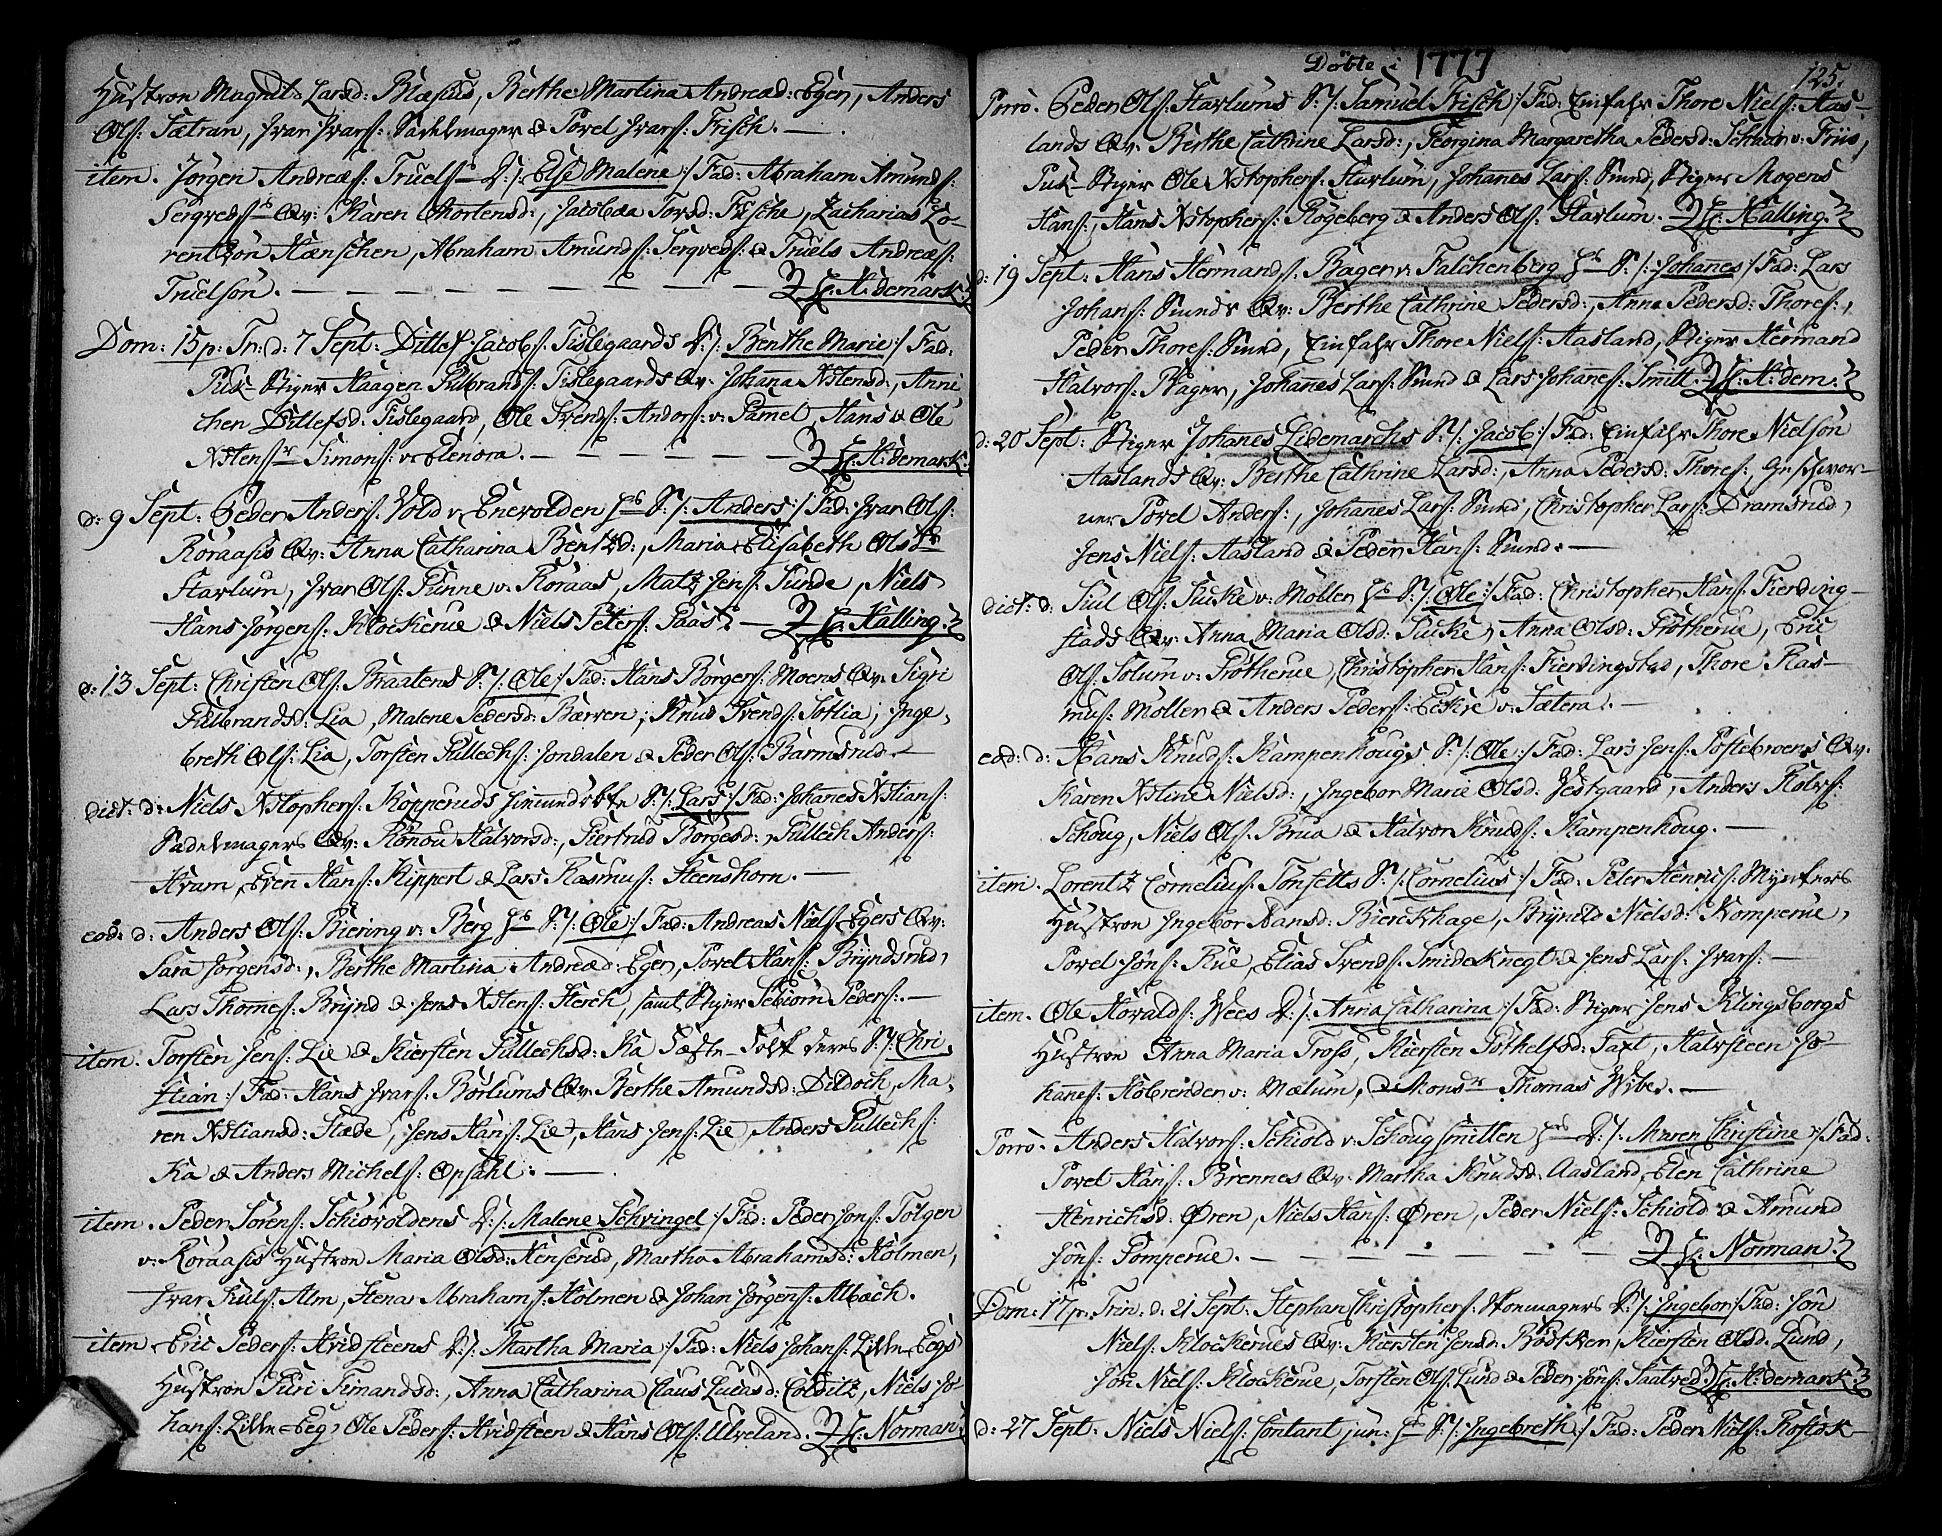 Hustron Magnil Larsd: Blæsius, Berthe Martina Andreæd: Egen, Anders
Ols: Sætran, Ivar Ivars: Sadelmager & Povel Ivars: Frisch. —
item. Jörgen Andreæs: Truels— D:/: Else Malene:/ Fad: Abraham Amunds:
Qv: Karen Mortensd:, Jacobæa Tovsd: Fische, Zacharias Lo-
rentzön Hænschen, Abraham Amunds: & Truels Andreæs:
Truelsön. — — — — — — H: demark.
Dom: 15 p: Tr: d: 7 Sept: Ditlef Jacobs: Fislegaards D:/: Benthe Marie:/ Fad:
Puk Stiger Haagen Gulbrands: Fislegaards Qv: Johana Xstensd:, Anni
chen Ditlefsd: Fislegaard, Ole Svends: Anders: v: Gamel, Hans & Ole
Xstens: Simons: v: Elenora. — — — — H: demark.
d: 9 Sept: Peder Anders: Vold v: Enevolden S:/: Anders:/ Fad: Ivar Ols:
Roraasis Qv: Anna Catharina Bentzd:, Maria Elisabeth Olsd:
Starlum, Ivar Ols: Sunne v: Roraas, Matz Jens: Sunde, Niels
Hans Jörgens: Klockerue & Niels Peters: Paas. — Halling.
d: 13 Sept: Christen Ols: Braatens S:/: Ole:/ Fad: Hans Börgers: Moens Qv: Sigri
Gulbrandsd: Lia, Malene Pedersd: Bærven, Knud Svends: Sotlia, Inge-
breth Ols: Lia, Torsten Gullechs: Jondalen & Peder Ols: Barmsrud. —
dict: d: Niels Xstophers: Kopperuds S:/: Lars:/ Fad: Johanes Xstians:
Sadelmagers Qv: Rönou Halvorsd:, Giertrud Börgesd:, Gullech Anders:
Hvam, Even Hans: Kippert & Lars Rasmus: Steenshorn. —
eod: d: Anders Ols: Biering v: Berg S:/: Ole:/ Fad: Andreas Niels: Egers Qv:
Sara Jörgensd:, Berthe Martina Andreæd: Egen, Povel Hans: Bryndsrud,
Lars Thomes: Brynd & Jens Xstens: Sterch, samt Stiger Sebiörn Peders: —
item. Torsten Jens: Lie & Kiersten Gullechsd: Ka Fæste-Folk deres S:/: Chri
stian:/ Fad: Hans Ivars: Börlums Qv: Berthe Amundsd: Dildoch, Ma-
ren Xstiansd: Stæde, Jens Hans: Lie, Hans Jens: Lie, Anders Gullechs:
Ka & Anders Michels: Opsahl. —
item. Peder Sörens: Schiövoldens D:/: Malene Schvingel:/ Fad: Peder Jons: Tolgen
v: Roraasis Hustron Maria Olsd: Hensrud, Martha Abrahamsd: Holmen,
Ivar Juls: Alm, Stenar Abrahams: Holmen & Johan Jörgens: Albech.
item Eric Peders: Hvidsteens D:/: Martha Maria:/ Fad: Niels Johans: Lille-Egs
Hustron Guri Simandsd:, Anna Catharina Claus Lucasd: Colditz, Niels Jo-
hans: Lille-Eeg, Ole Peders: Hvidsteen & Hans Ols: Ulveland. Norman.
Döbte i 1777
125.
Porro. Peder Ols: Starlums S:/: Samuel Frisch:/ Fad: Einfahr Thore Niels: Aas-
lands Qv: Berthe Cathrine Larsd:, Georgina Margaretha Pedersd: Schaar v: Friis,
Puk-Stiger Ole Xstophers: Starlum, Johanes Lars: Smed, Stiger Mogens
Hans:, Hans Xstophers: Rogeberg & Anders Ols: Starlum. Halling.
d: 19 Sept: Hans Hermands: Bager v: Falchenberg S:/: Johanes:/ Fad: Lars
Johans: Smeds Qv: Berthe Cathrine Pedersd:, Anna Pedersd: Thores:,
Peder Thores: Smed, Einfahr Thore Niels: Aasland, Stiger Hermand
Halvors: Bager, Johannes Lars: Smed & Lars Johanes: Smitt. H: dem.
d: 20 Sept: Stiger Johanes Lidemarchs S:/: Jacob:/ Fad: Einfahr Thore Nielsön
Aaslands Qv: Berthe Cathrine Larsd:, Anna Pedersd: Thores:, Geschvor-
ner Povel Anders:, Johanes Lars: Smed, Christopher Lars: Dramsrud,
Jens Niels: Aasland & Peder Hans: Smed. —
dict: d: Jul Ols: Flucke v: Möllen S:/: Ole:/ Fad: Christopher Hans: Fierding-
stads Qv: Anna Maria Olsd: Flucke, Anna Olsd: Frötherue, Eric
Ols: Solum v: Frötherue, Christopher Hans: Fierdingstad, Thore Ras-
mus: Möllen & Anders Peders: v: Sætera. —
eod: d: Hans Knuds: Kampenhougs S:/: Ole:/ Fad: Lars Jens: Postebroens Qv:
Karen Xstine Nielsd:, Ingebor Marie Olsd: Vestgaard, Anders Rolvs:
Schoug, Niels Ols: Brua & Halvor Knuds: Kampenhoug. —
item. Lorentz Cornelius: Tonsetts S:/: Cornelius:/ Fad: Peter Henris: Mynters
Hustron Ingebor Hansd: Bierckhage, Bryneld Nielsd: Komperue,
Povel Jöns: Rue, Elias Svends: Smideknegt & Jens Lars: Ivars: —
item. Ole Hovalds: Wees D:/: Anna Catharina:/ Fad: Stiger Jens Klingsborgs
Hustron Anna Maria Tross, Kiersten Gothelfsd: Taxt, Halvsteen Jo-
hanes: v: Mælum, & Mons: Thomas Wibe. —
Porro. Anders Halvors: Schiold v: Schougsmitten D:/: Maren Christine:/ Fad:
Povel Hans: Brennes Qv: Martha Knudsd: Aasland, Elen Cathrine
Henrichsd: Ören, Niels Hans: Ören, Peder Niels: Schiold & Amund
Jöns: Pomperue. — — — — — Norman.
Dom: 17 p: Trin: d: 21 Sept: Stephan Christophers: Skomagers D:/: Ingebor:/ Fad: Jön
Niels: Klockerues Qv: Kiersten Jensd: Bödtker, Kiersten Olsd: Lund,
Jön Niels: Klockerue, Torsten Ols: Lund & Peder Jöns: Saatved. H: demark.
d: 27 Sept: Niels Niels: Contant jun: S:/: Ingebreth:/ Fad: Peder Niels: Rostok-